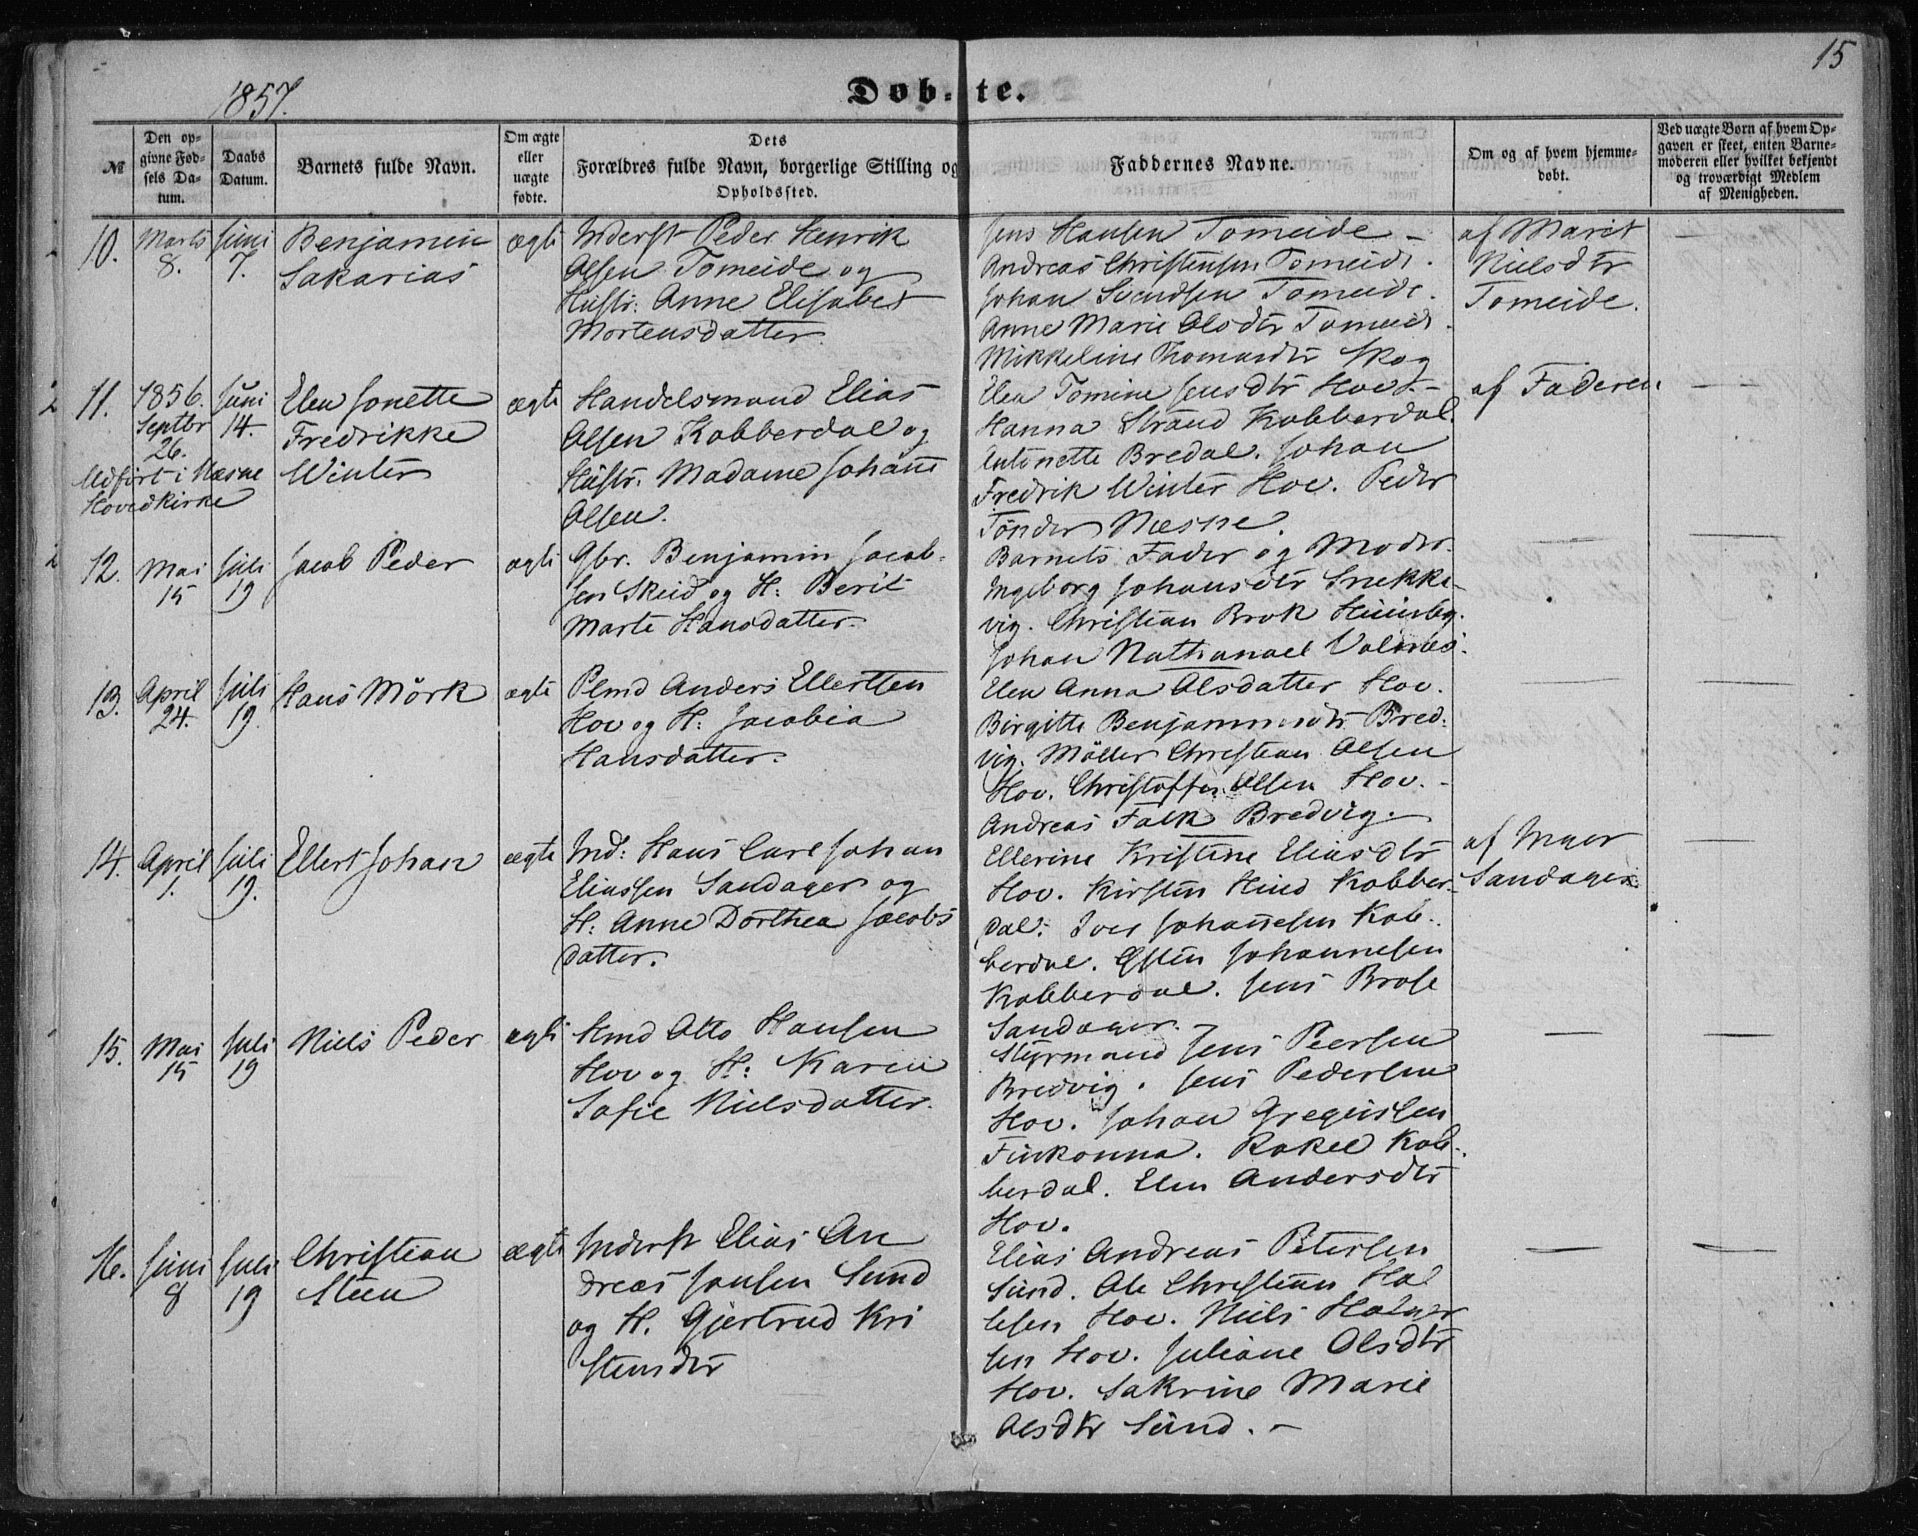 15
1857.
Døb-te.
№
Den op-
givne Fød-
sels Da-
tum.
Daabs
Datum.
Barnets fulde Navn.
Om ægte
eller
uægte
fødte.
Dets
Forældres fulde Navn, borgerlige Stilling og
Opholdssted.
Faddernes Navne.
Om og af hvem hjemme-
døbt.
Ved uægte Børn af hvem Op-
gaven er skeet, enten Barne-
moderen eller hvilket bekjendt
og troværdigt Medlem
af Menigheden.
10.
Marts
8.
Juni
7.
Benjamin
Sakarias
ægte
Inderst Peder Henrik
Olsen Tomeide og
Hustr: Anne Elisabet
Mortensdatter
Jens Hansen Tomeide –
Andreas Christensen Tomeide.
Johan Svendsen Tomeide.
Anne Marie Olsdtr Tomeide.
Mikkeline Thomasdtr Skog
af Marit
Nielsdtr
Tomeide.
11.
1856.
Septbr
26.
Juni
14.
Elen Jonette
Fredrikke
Winter
Udført i Næsne
Hovedkirke
ægte
Handelsmand Elias
Olsen Kobberdal og
Hustr. Madame Johane
Olsen.
Elen Tomine Jensdtr Hov –
Hanna Strand Kobberdal
Antonette Bredal. Johan
Fredrik Winter Hov. Peder
Tønder Næsne.
af Faderen
12.
Mai
15
Juli
19
Jacob Peder
ægte
Gbr. Benjamin Jacob-
sen Skeid og H: Berit
Marte Hansdatter.
Barnets Fader og Moder.
Ingeborg Johansdtr Snekke-
vig. Christian Brok
Johan Nathanael Valnes.
13.
April
24.
Juli
19.
Hans Mörk
ægte
Plmd Anders Ellertsen
Hov og H: Jacobia
Hansdatter.
Elen Anna Olsdatter Hov.
Birgitte Benjaminsdtr Bred-
vig. Möller Christian Olsen
Hov. Christoffer Olsen Hov. –
Andreas Falk Bredvig. –
14.
April
1.
Juli
19.
Ellert Johan
ægte
Ind: Hans Carl Johan
Eliassen Sandager og
H: Anne Dorthea Jacobs
datter.
Ellerine Kristine Eliasdtr
Hov. Kirsten Hind Kobber-
dal. Iver Johannesen Kob-
berdal. Esten Johannesen
Kobberdal. Jens Brose
Sandager.
af Maar
Sandager.
15.
Mai
15
Juli
19
Niels Peder
ægte
Kmd Otto Hansen
Hov og H: Karen
Sofie Nielsdatter.
Styrmand Jens Peersen
Bredvig. Jens Pedersen
Hov. Johan Gregussen
Finkonna. Rakel Kob-
berdal. Elen Andersdtr
Hov.
16.
Juni
8
Juli
19
Christian
Steen
ægte
Inderst Elias An
dreas Jonsen Sund
og H. Gjertrud Kri
stensdtr
Elias Andreas Petersen
Sund. Ole Christian Hal
lesen Hov. Niels
sen Hov. Juliane Olsdtr
Hov. Sakrine Marie
Olsdtr Sund. –